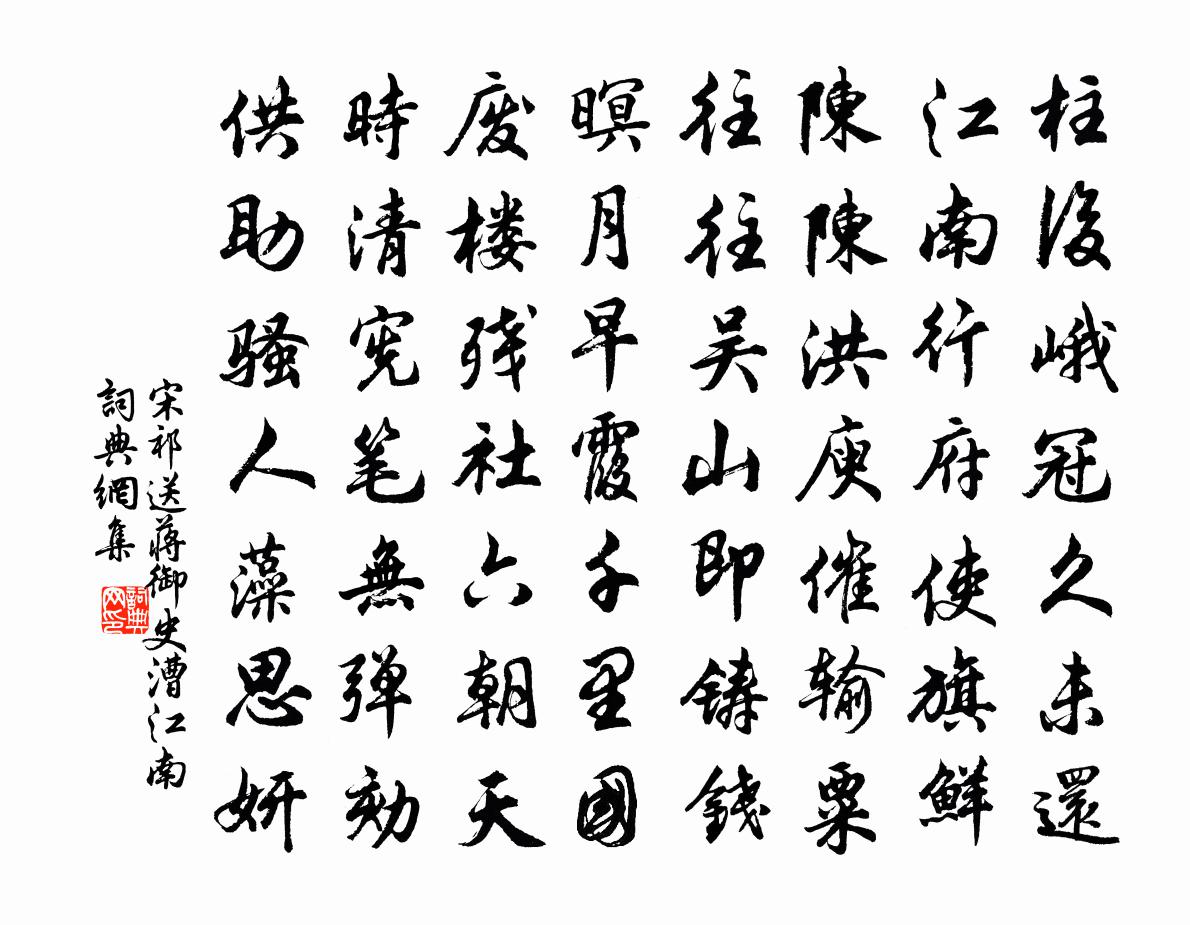 柱後峨冠久未還
江南行府使旗鮮
陳陳洪庾催输粟
往往吴山即铸錢
暝月早霞千里國
废楼残社六朝天
時清宪笔無弹劾
供助骚人藻思妍
宋祁送蒋御史漕江南
詞典網集
詞典网印